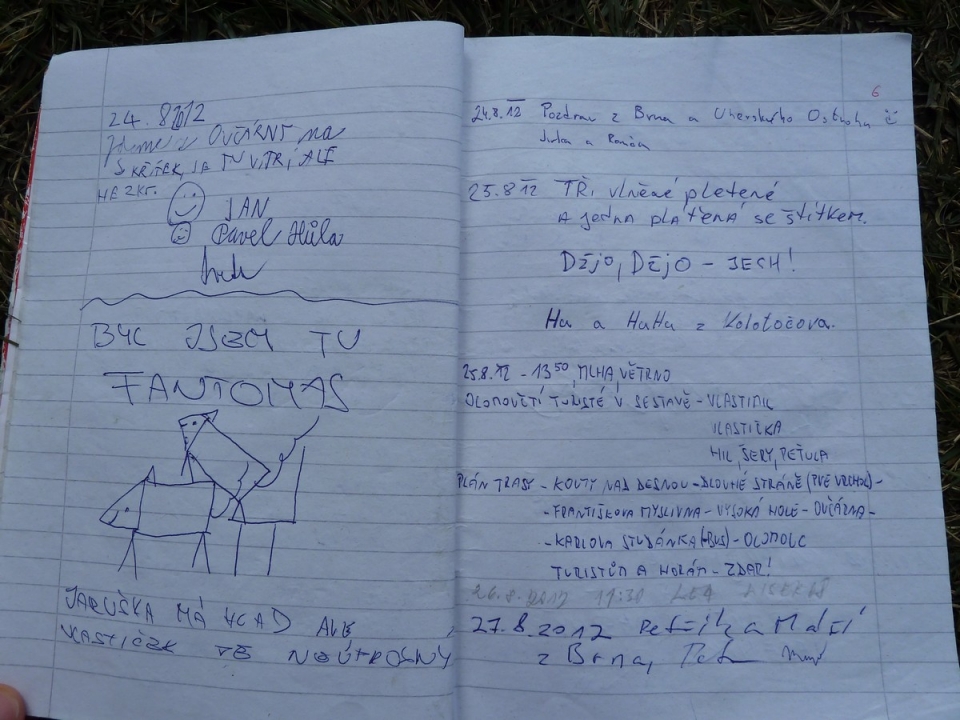 24.8.2012
OVČÁRNY na
SKŘÍTEK, JE TU VÍTR, ALE
HEZKY.
JAN
Pavel Hůla
BYL JSEM TU
FANTOMAS
JARUŠKA MÁ HLAD ALE
VLASTÍČEK JE NEÚTROSNÝ
6
24.8.12 Pozdrav z Brna a Uherského Ostrohu
a
25.8.12 TŘi vlněné pletené
A jedna plátěná se štítkem.
DĚJO, DĚJO - JECH!
Hu a HuHu z Kolotočova.
25.8.12 - 13⁵⁰, MLHA, VĚTRNO
OLOMOUČTÍ TURISTÉ V SESTAVĚ - VLASTIMIL
VLASTIČKA
MIL, ŠERY, PEŤULA
PLÁN TRASY - KOUTY NAD DESNOU - DLOUHÉ STRÁNĚ (PVE VRCHOL) -
- FRANTIŠKOVA MYSLIVNA - VYSOKÁ HOLE - OVČÁRNA -
- KARLOVA STUDÁNKA (+BUS) - OLOMOUC
TURISTŮM A HORÁM - ZDAR!
26.8.2012 11:30
27.8.2012 a
z Brna, Petr